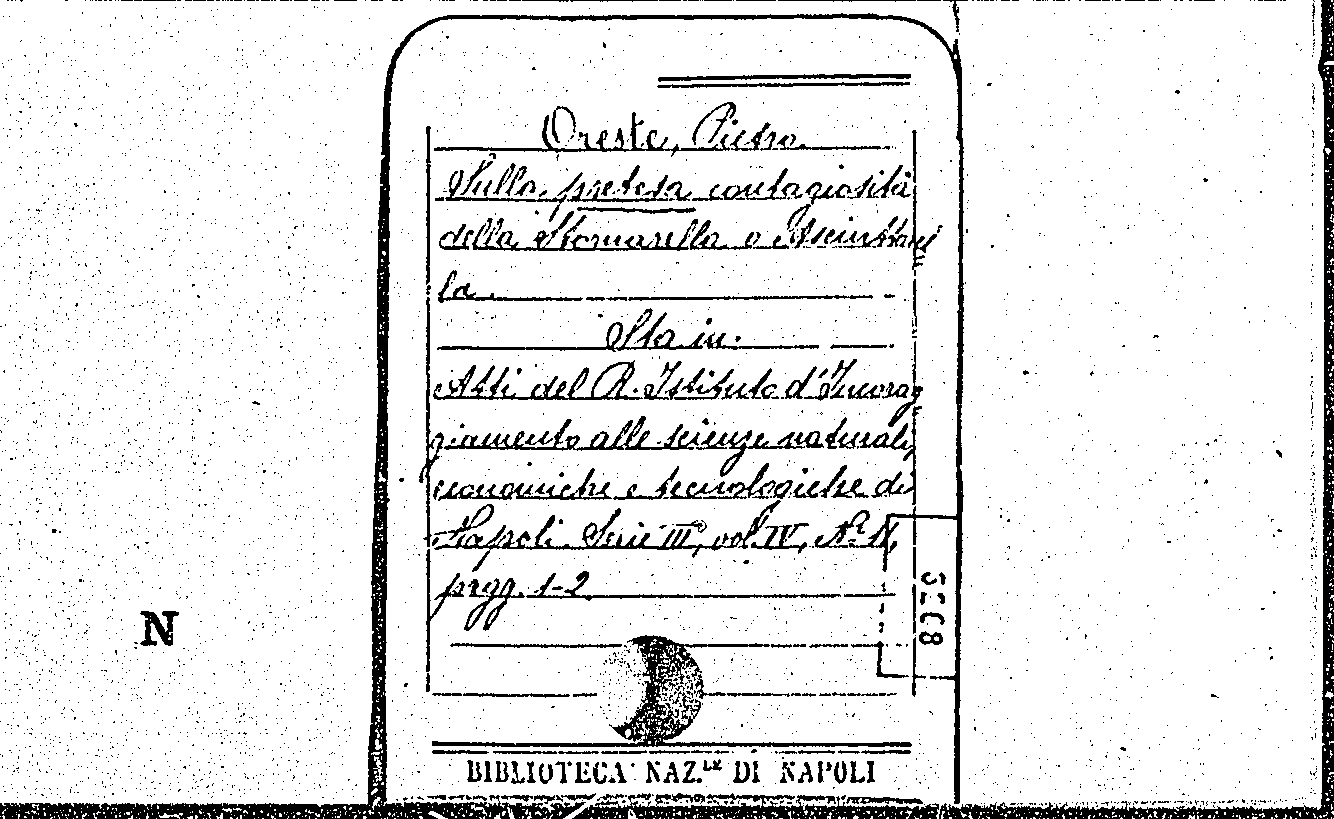 Oreste, Pietro.
Sulla pretesa contagiosità
della Stomarella o Asciuttarel
la.
Sta in:
Atti del R. Istituto d'Incorag
giamento alle scienze naturali,
economiche e tecnologiche di
Napoli. Serie III, vol. IV, N.
pagg. 1-2
N
BIBLIOTECA NAZ.LE DI NAPOLI